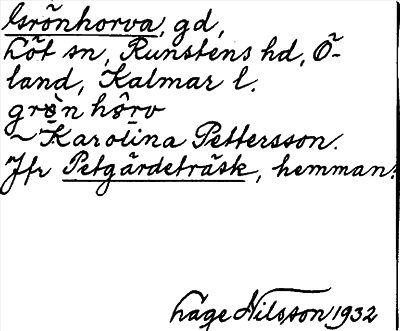 Grönhorva, gd,
Löt sn, Runstens hd, Ö-
land, Kalmar l.
grö̀n hơrv
~ Karolina Pettersson.
Jfr Petgärdeträsk, hemman.
Låge Nilsson 1932